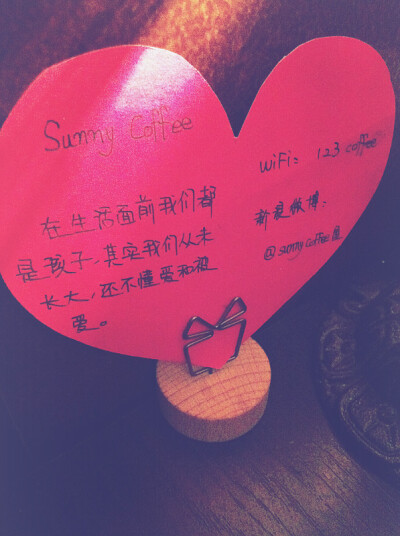 Sunny Coffee
在生活面前我们都
是孩子,其实我们从未
长大,还不懂爱和被
爱。
WiFi: 123 coffee
新浪微博:
@sunny coffee屋